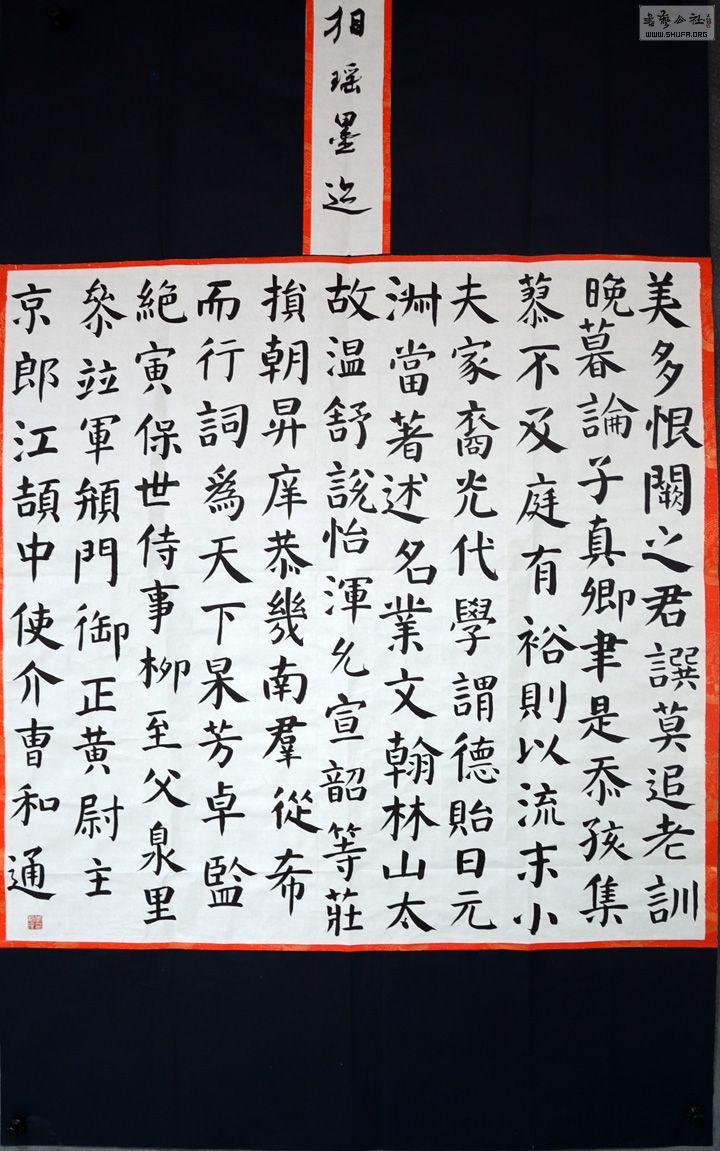 瑶墨迹
WWW.SHUFA.ORG
美多恨闕之君譔莫追老訓
晚暮論子真卿聿是忝孩集
不及庭有裕則以流末小
夫家裔光代學謂德貽日元
洲當著述名業文翰林山太
故温舒說怡渾允宣韶等莊
損朝昇庠恭幾南羣從希
而行詞爲天下杲芳卓監
絶寅保世侍事柳至父泉里
叅竝軍頯門御正黄尉主
京郎江頡中使介曹和通